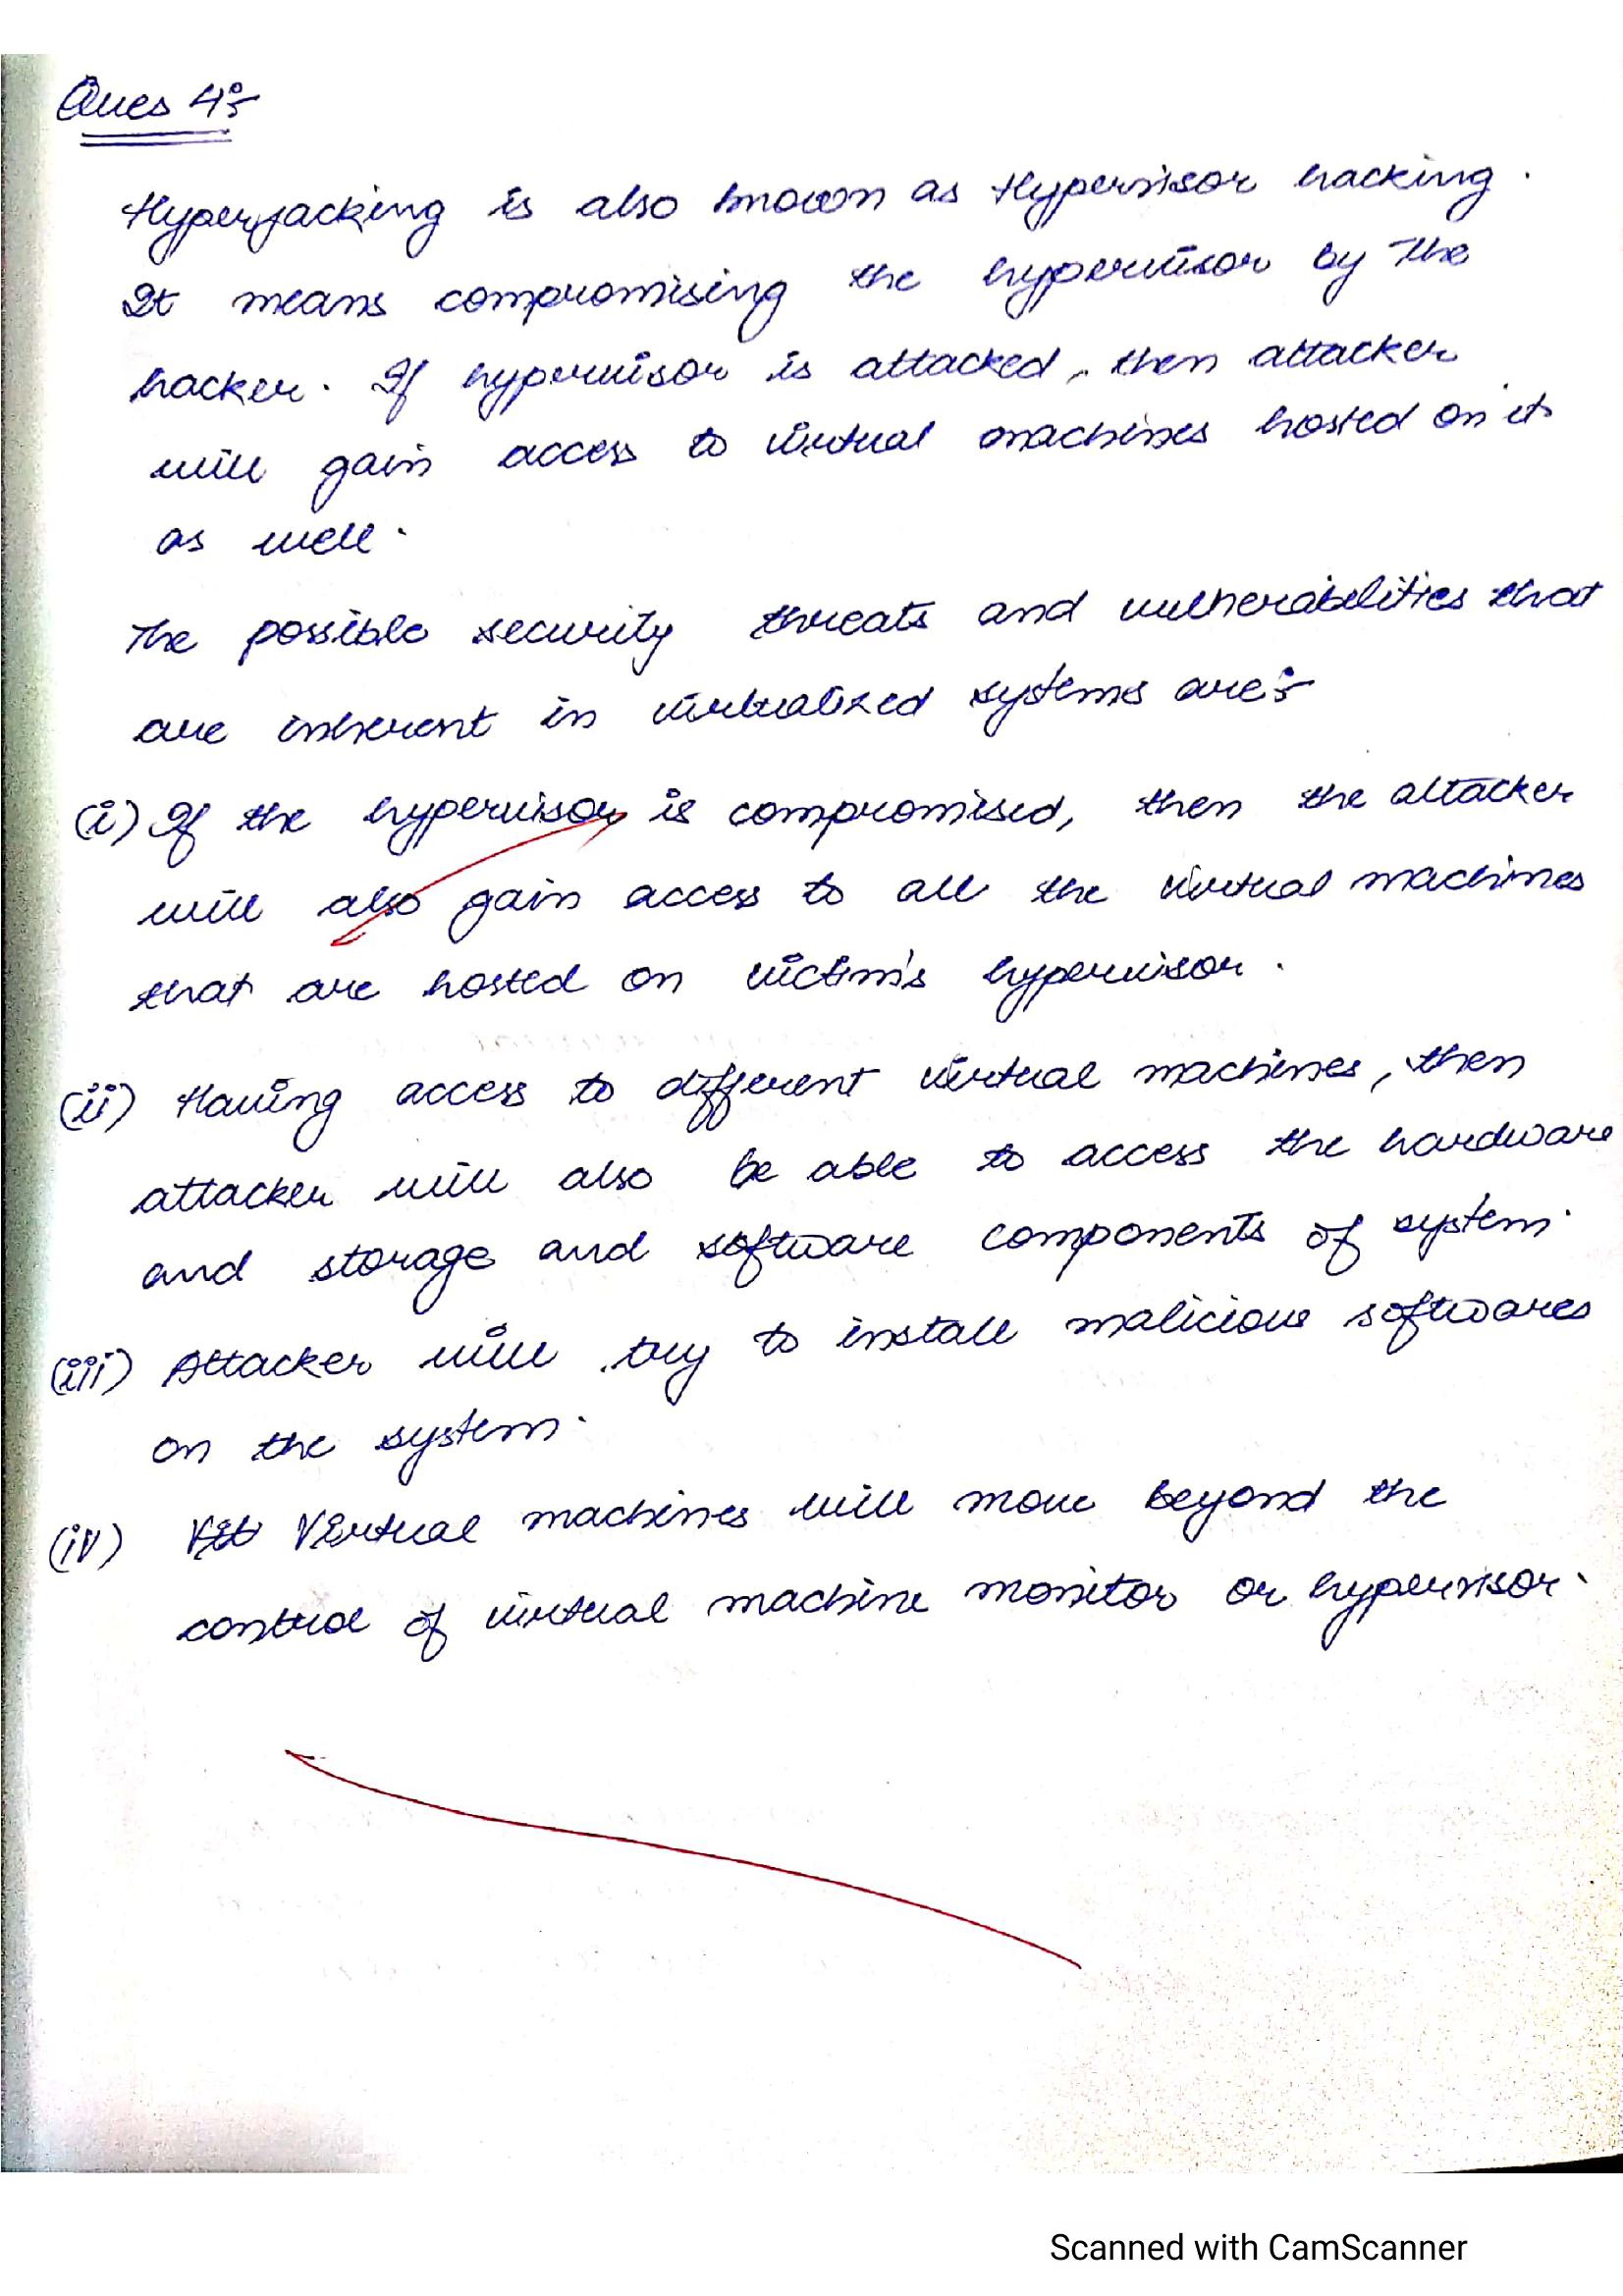 Ques 4:-
Hyperjacking is also known as Hypervisor hacking.
It means compromising the hypervisor by the
hacker. If hypervisor is attacked, then attacker
will gain access to virtual machines hosted on it
as well.
The possible security threats and vulnerabilities that
are inherent in virtualized systems are:-
(i) If the hypervisor is compromised, then the attacker
will also gain access to all the virtual machines
that are hosted on victim's hypervisor.
(ii) Having access to different virtual machines, then
attacker will also be able to access the hardware
and storage and software components of system.
(iii) Attacker will try to install malicious softwares
on the system.
(iv) Virtual machines will move beyond the
control of virtual machine monitor or hypervisor.
Scanned with CamScanner